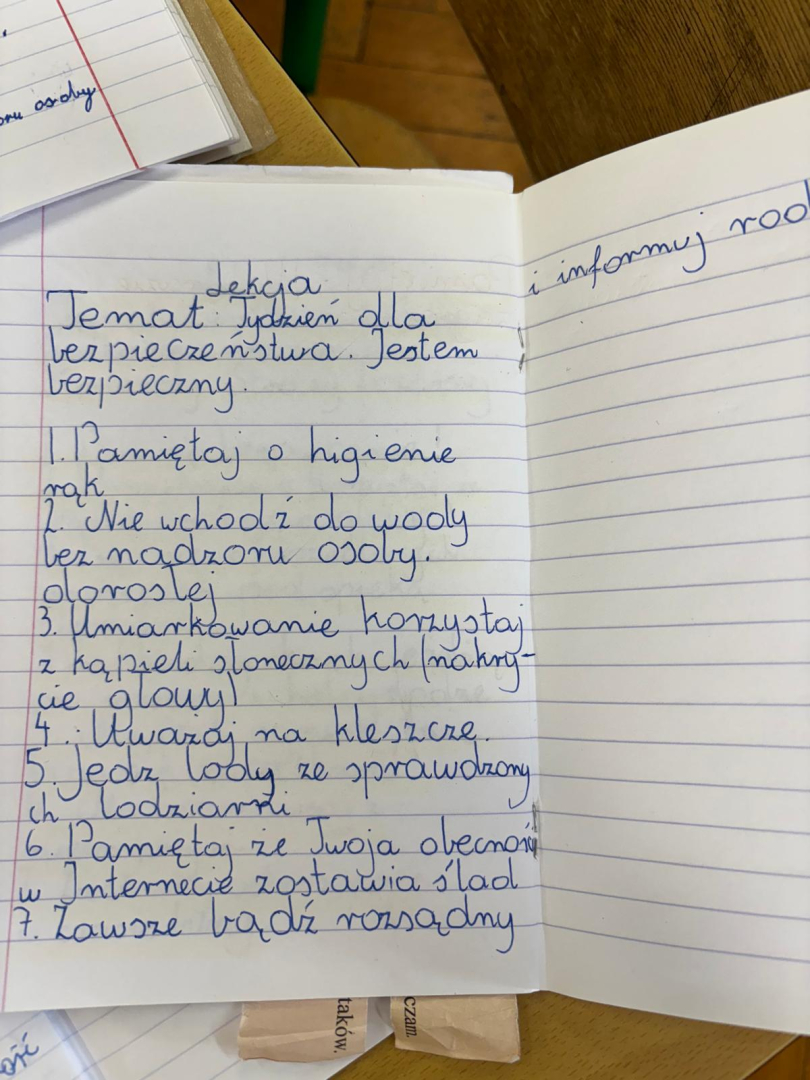 oru osoby
Lekcja
Temat: Tydzień dla
bezpieczeństwa. Jestem
bezpieczny.
1. Pamiętaj o higienie
rąk
2. Nie wchodź do wody
bez nadzoru osoby.
dorosłej
3. Umiarkowanie korzystaj
z kąpieli słonecznych (nakry-
cie głowy)
4. Uważaj na kleszcze.
5. Jedz lody ze sprawdzony
ch lodziarni
6. Pamiętaj że Twoja obecność
w Internecie zostawia ślad
7. Zawsze bądź rozsądny
i informuj rod
taków.
czam.
ość